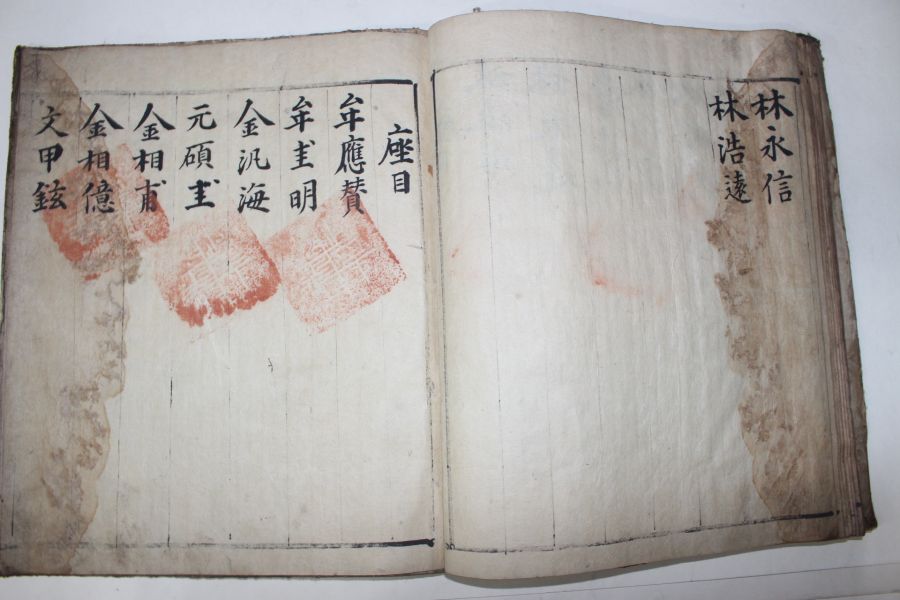 林永信
林浩遠
座目
牟應賛
牟圭明
金汎海
元碩圭
金相甫
金相億
文甲鉉